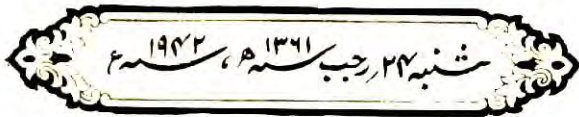 شنبہ ۲۴؍ رجب سنہ ۱۳۶۱ھ، سنہ ۱۹۴۲ء